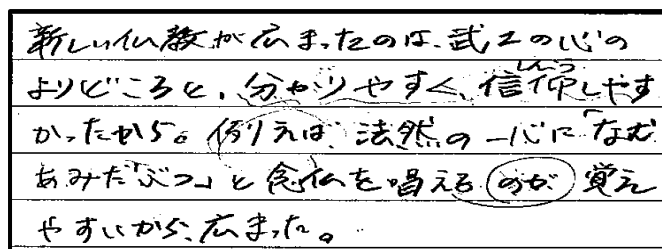 新しい仏教が広まったのは、武士の心の
よりどころと、分かりやすく、信仰しやす
しんこう
かったから。例えば、法然の一心に「なむ
あみだぶつ」と念仏を唱える のが 覚え
やすいから、広まった。